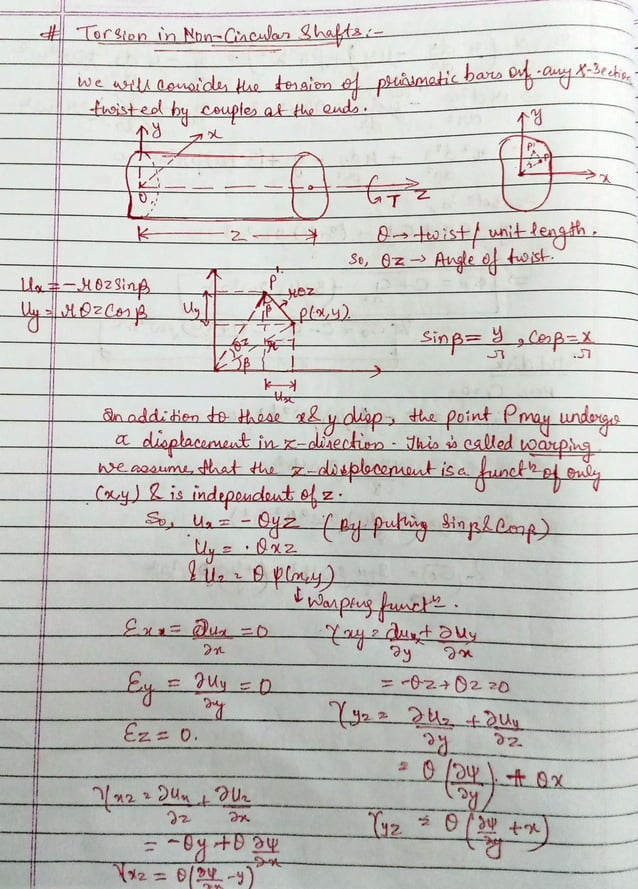 # Torsion in Non-Circular Shafts:-
We will consider the torsion of prismatic bars of any X-Section
twisted by couples at the ends.
y
x
O
T
Z
z
y
P'
P
x
θ → twist / unit length.
So, θz → Angle of twist.
Ux = -rθz sinβ
Uy = rθz cosβ
P'
Uy
β
rθz
P(x,y)
θz
r
β
Ux
sinβ = y/r , cosβ = x/r
In addition to these x & y disp, the point P may undergo
a displacement in z-direction. This is called warping.
We assume, that the z-displacement is a functn of only
(x,y) & is independent of z.
So, Ux = -θyz (By putting sinβ & cosβ)
Uy = θxz
& Uz = θ ψ(x,y)
↓ Warping functn.
Ɛxx = ∂ux/∂x = 0
γxy = ∂ux/∂y + ∂uy/∂x
= -θz + θz = 0
Ɛy = ∂uy/∂y = 0
γyz = ∂uz/∂y + ∂uy/∂z
Ɛz = 0.
= θ (∂ψ/∂y) + θx
γxz = ∂ux/∂z + ∂uz/∂x
γyz = θ (∂ψ/∂y + x)
= -θy + θ ∂ψ/∂x
γxz = θ (∂ψ/∂x - y)